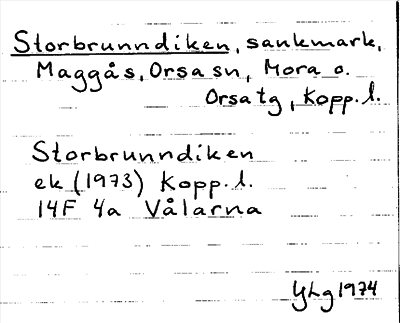 Storbrunndiken, sankmark,
Maggås, Orsa sn, Mora o.
Orsa tg, Kopp. l.
Storbrunndiken
ek (1973) Kopp. l.
14F 4a Vålarna
YLg 1974